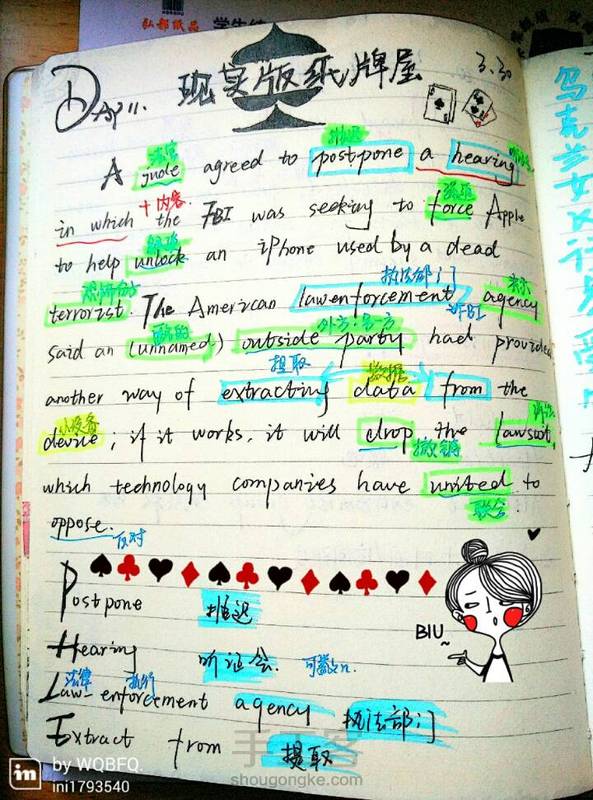 弘都纸品
Day 11.
现实版纸牌屋
3.30
法官
推迟
A jude agreed to postpone a hearing
+内容
强迫
in which the FBI was seeking to force Apple
解锁
to help unlock an iPhone used by a dead
恐怖份子
执法部门
terrorist. The American lawenforcement agency
FBI
said an (unnamed) outside party had provided
提取
数据
another way of extracting data from the
device; if it works, it will drop the lawsuit,
撤销
which technology companies have united to
联合
oppose.
反对
Postpone 推迟
BIU~
Hearing 听证会. 可数n.
法律 执行
Law-enforcement agency 执法部门
Extract from 提取
手工客
shougongke.com
in by WQBFQ.
ini1793540